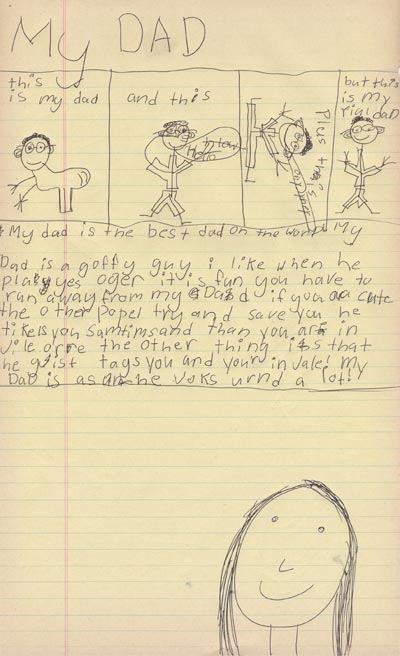 My DAD
this
is my dad
and this
Plus this
but this
is my
rial dad
My dad is the best dad on the world My
Dad is a goffy guy i like when he
playes oger it is fun you have to
run away from my Dad if you aa cute
the other popel try and save you he
tikels you samtims and than you are in
Jile orre the other thing is that
he gist tags you and your in Jale! my
Dad is as an he woks urnd a lot!